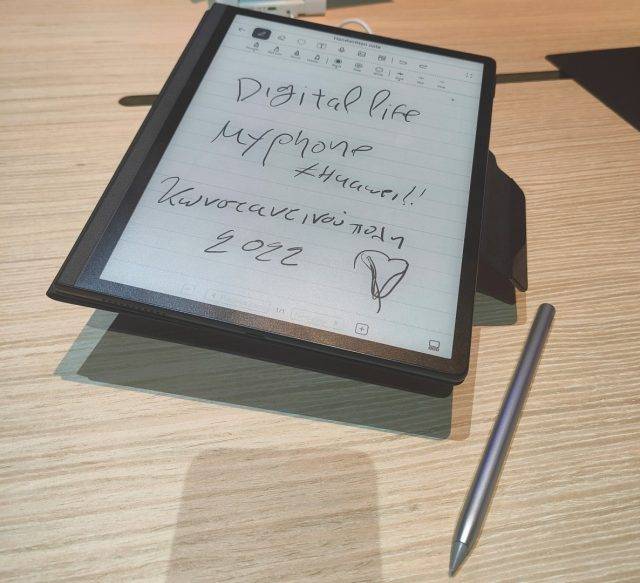 Handwritten note
Digital life
Myphone
#Huawei!!
Κωνσταντινούπολη
2022
1/1